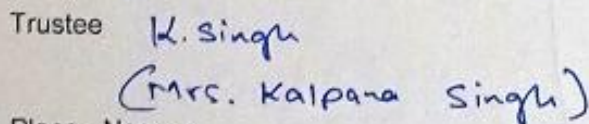 Trustee K. Singh
(Mrs. Kalpana Singh)